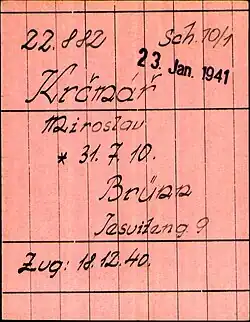 22.882 Sch.10/1
23. Jan. 1941
Krčmář
Miroslav
* 31.7.10.
Brünn
Jesuiteng. 9
Zug: 18.12.40.